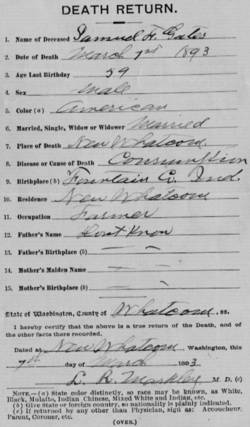 DEATH RETURN.
1. Name of Deceased Samuel F. Gates
2. Date of Death March 7nd 1893
3. Age Last Birthday 59
4. Sex Male
5. Color (a) American
6. Married, Single, Widow or Widower Married
7. Place of Death New Whatcom
8. Disease or Cause of Death Consumption
9. Birthplace (b) Fountain Co. Ind.
10. Residence New Whatcom
11. Occupation Farmer
12. Father's Name Dont Know
13. Father's Birthplace (b)
14. Mother's Maiden Name
15. Mother's Birthplace (b)
State of Washington, County of Whatcom, ss.
I hereby certify that the above is a true return of the Death, and of the other facts there recorded.
Dated at New Whatcom Washington, this
7th day of March 1893
L. R. Markley M. D. (c)
NOTE.—(a) State color distinctly, so race may be known, as White,
Black, Mulatto, Indian, Chinese, Mixed White and Indian, etc.
(b) Give State or foreign country, so nationality is plainly indicated.
(c) If returned by any other than Physician, sign as: Accoucheur,
Parent, Coroner, etc.
(OVER.)